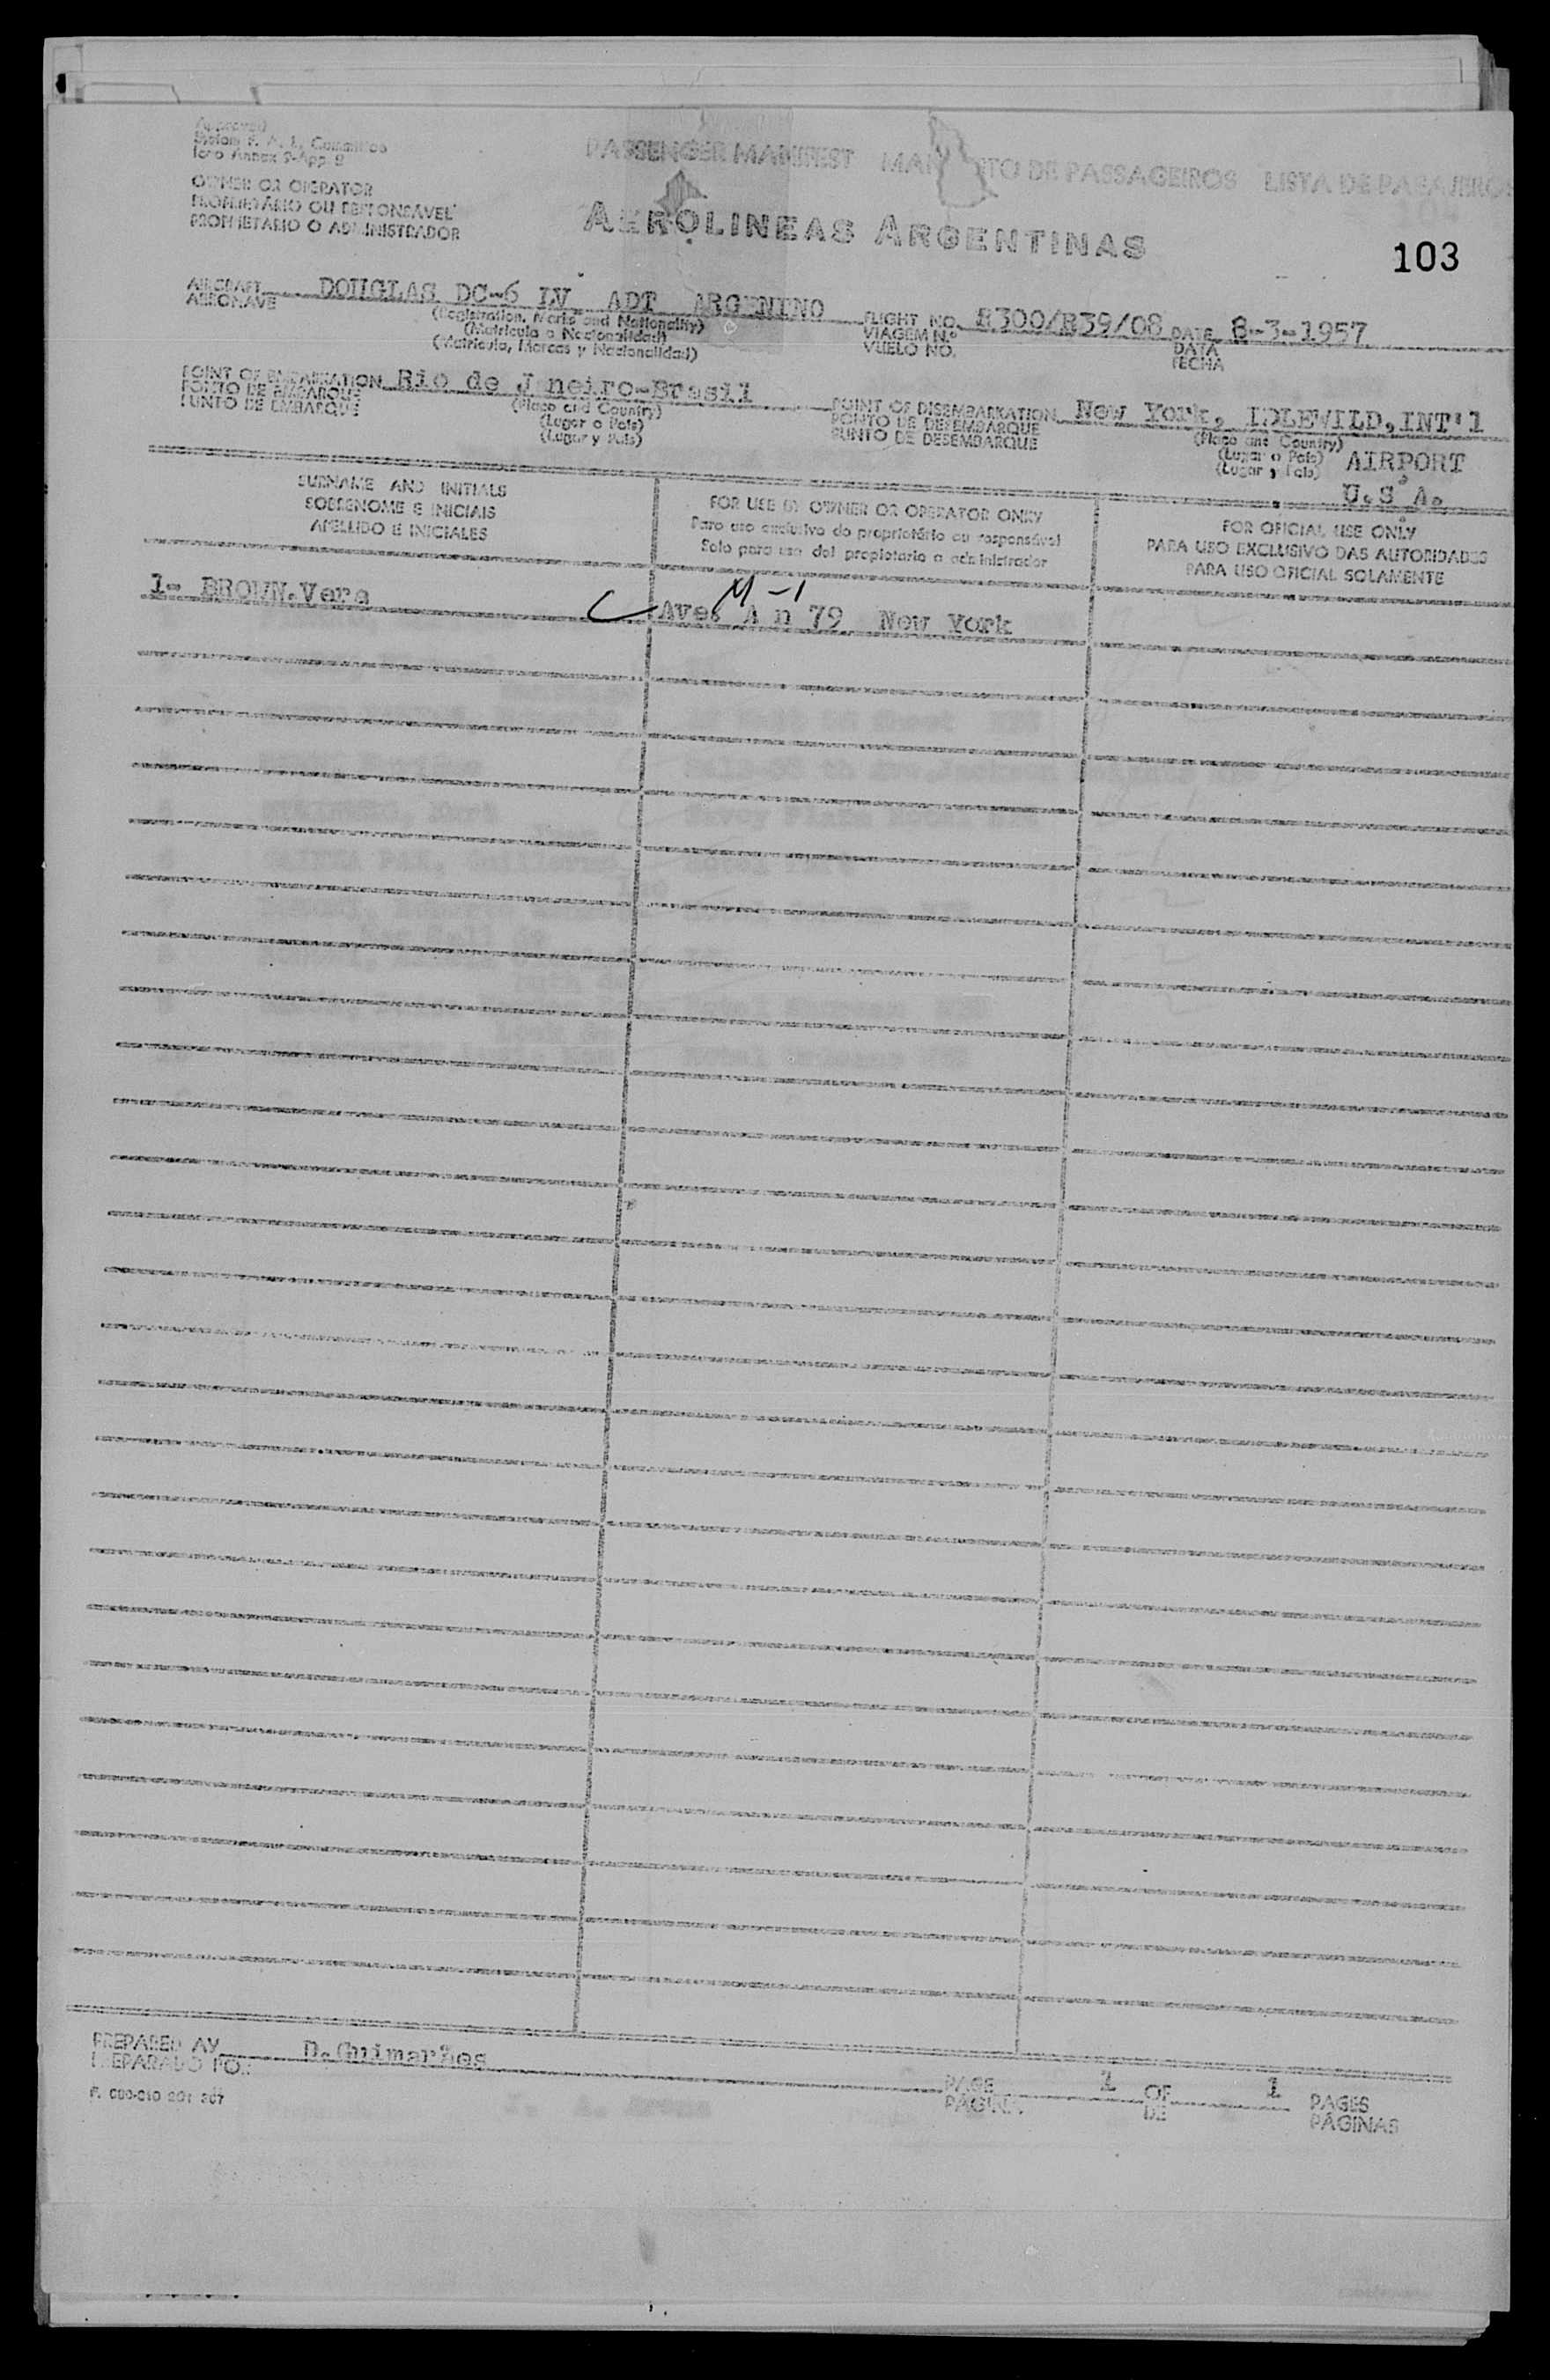 PASSENGER MANIFEST MAN TO DE PASSAGEIROS LISTA DE PASAJEROS
OWNER OR OPERATOR
PROPRIETÁRIO OU RESPONSÁVEL
PROPIETARIO O ADMINISTRADOR
AEROLINEAS ARGENTINAS
103
AIRCRAFT DOUGLAS DC-6 LV ADT ARGENTNO
AERONAVE
(Registration, Marks and Nationality)
(Matricula o Nacionalidad)
(Matricula, Marcas y Nacionalidad)
FLIGHT NO. R300/R39/08 DATE 8-3-1957
VIAGEM N.º DATA
VUELO NO. FECHA
POINT OF EMBARKATION Rio de J neiro-Brasil
PONTO DE EMBARQUE
PUNTO DE EMBARQUE
(Place and Country)
(Lugar o País)
(Lugar y País)
POINT OF DISEMBARKATION New York, IDLEWILD,INT'l
PONTO DE DESEMBARQUE
PUNTO DE DESEMBARQUE
(Place and Country)
(Lugar o País) AIRPORT
(Lugar y País)
U.S A.
SURNAME AND INITIALS
SOBRENOME E INICIAIS
APELLIDO E INICIALES
FOR USE BY OWNER OR OPERATOR ONLY
Para uso exclusivo do proprietário ou responsável
Solo para uso del propietario o administrador
FOR OFICIAL USE ONLY
PARA USO EXCLUSIVO DAS AUTORIDADES
PARA USO OFICIAL SOLAMENTE
M-1
1- BROWN.Vera Ave. A n 79 New York
PREPARED AY D.Guimarães
PREPARADO POR
F. 000-010 201 207
PAGE 1 OF 1 PAGES
PÁGINA DE PÁGINAS